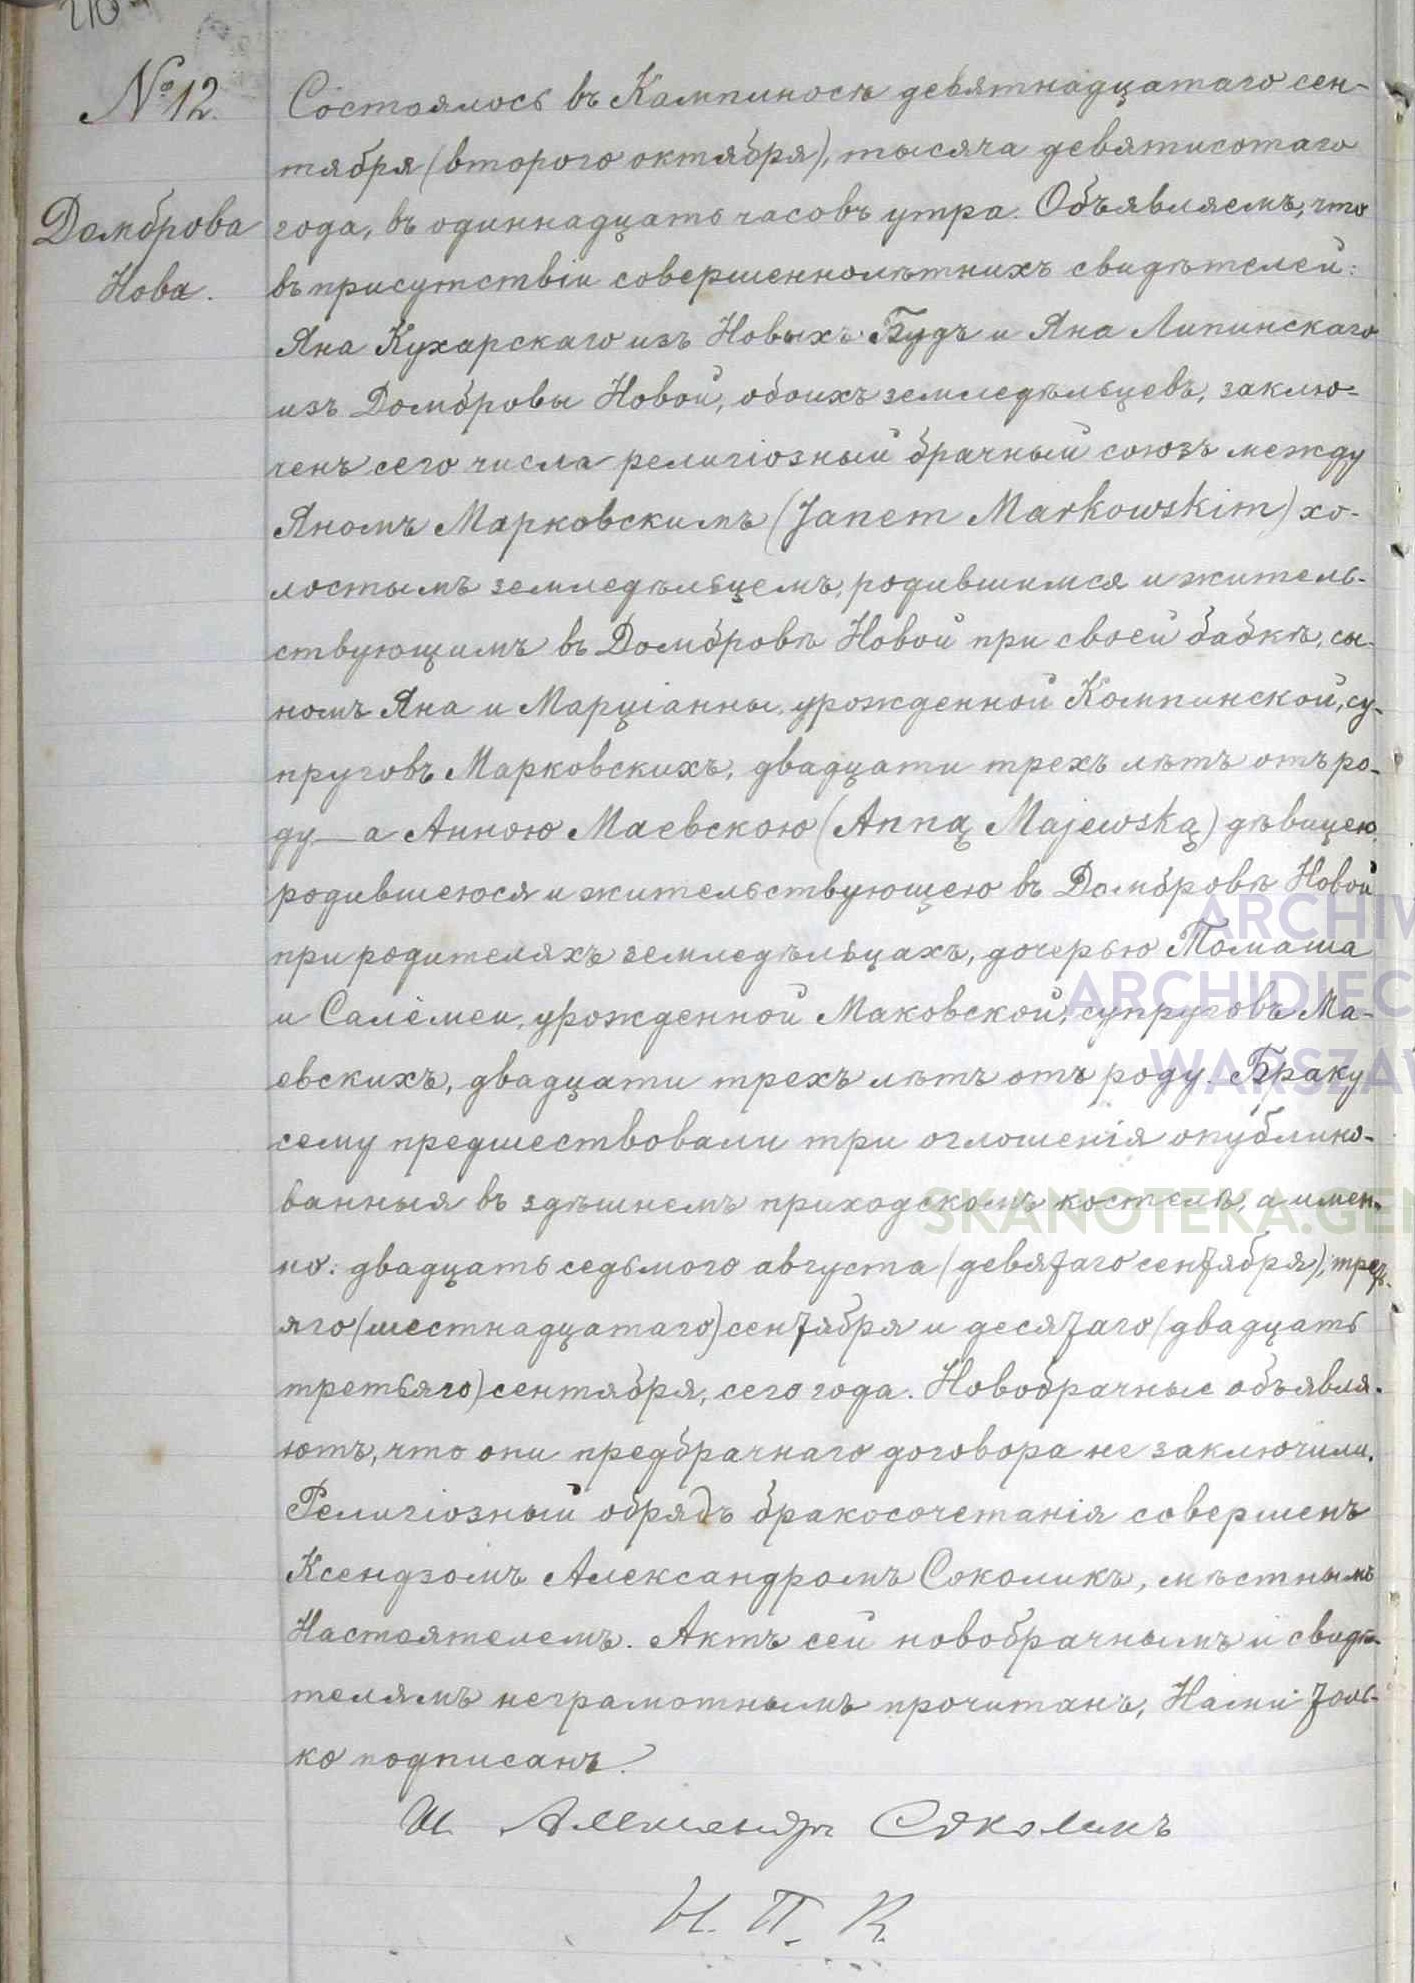 210
№ 12.
Домброва
Нова.
Состоялось въ Кампиносѣ девятнадцатаго сен-
тября (второго октября), тысяча девятисотаго
года, въ одиннадцать часовъ утра. Объявляемъ, что
въ присутствіи совершеннолѣтнихъ свидѣтелей:
Яна Кухарскаго изъ Новыхъ Будъ и Яна Липинскаго
изъ Домбровы Новой, обоихъ земледѣльцевъ, заклю-
ченъ сего числа религіозный брачный союзъ между
Яномъ Марковскимъ (Janem Markowskim) хо-
лостымъ земледѣльцемъ, родившимся и житель-
ствующимъ въ Домбровѣ Новой при своей бабкѣ, сы-
номъ Яна и Марціанны, урожденной Компинской, су-
пруговъ Марковскихъ, двадцати трехъ лѣтъ отъ ро-
ду — а Анною Маевскою (Anną Majewską) дѣвицею,
родившеюся и жительствующею въ Домбровѣ Новой
при родителяхъ земледѣльцахъ, дочерью Томаша
и Салёмеи, урожденной Маковской, супруговъ Ма-
евскихъ, двадцати трехъ лѣтъ отъ роду. Браку
сему предшествовали три оглошенія опублико-
ванныя въ здѣшнемъ приходскомъ костелѣ, а имен-
но: двадцать седьмого августа (девятаго сентября), треть-
яго (шестнадцатаго) сентября и десятаго (двадцать
третьяго) сентября, сего года. Новобрачные объявля-
ютъ, что они предбрачнаго договора не заключили.
Религіозный обрядъ бракосочетанія совершенъ
Ксендзомъ Александромъ Соколикъ, мѣстнымъ
Настоятелемъ. Актъ сей новобрачнымъ и свидѣ-
телямъ неграмотнымъ прочитанъ, Нами толь-
ко подписанъ.
Александръ Соколикъ
Н. П. К.
ARCHIW
ARCHIDIEC
WARSZAW
SKANOTEKA.GEN